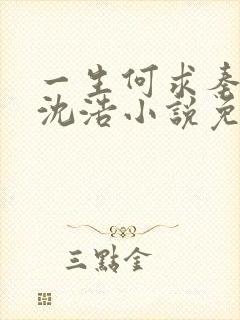 一生何求秦
沈浩小說免
三點金